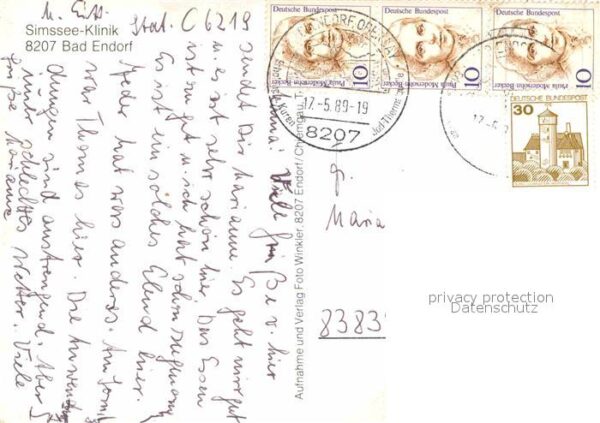 Simssee-Klinik
8207 Bad Endorf
Stat. C 6219
Viele Grüße v. hier
sendet Dir Marianne. Es geht mir gut
u. es ist sehr schön hier. Das Essen
ist so gut u. ich hab schon zugenom
Es ist ein solches Elend hier.
Jeder hat was anderes. Am
war Thomas hier. Die Anwen
dungen sind anstrengend. Aber
immer schlechtes Wetter. Viele
Grüße Marianne
Aufnahme und Verlag Foto Winkler, 8207 Endorf/Chiemgau
Deutsche Bundespost
Paula Modersohn-Becker
10
Deutsche Bundespost
Paula Modersohn-Becker
10
Deutsche Bundespost
Paula Modersohn-Becker
10
DEUTSCHE BUNDESPOST
30
17.-5.89-19
8207
Jod Therme
Maria
8383
privacy protection
Datenschutz